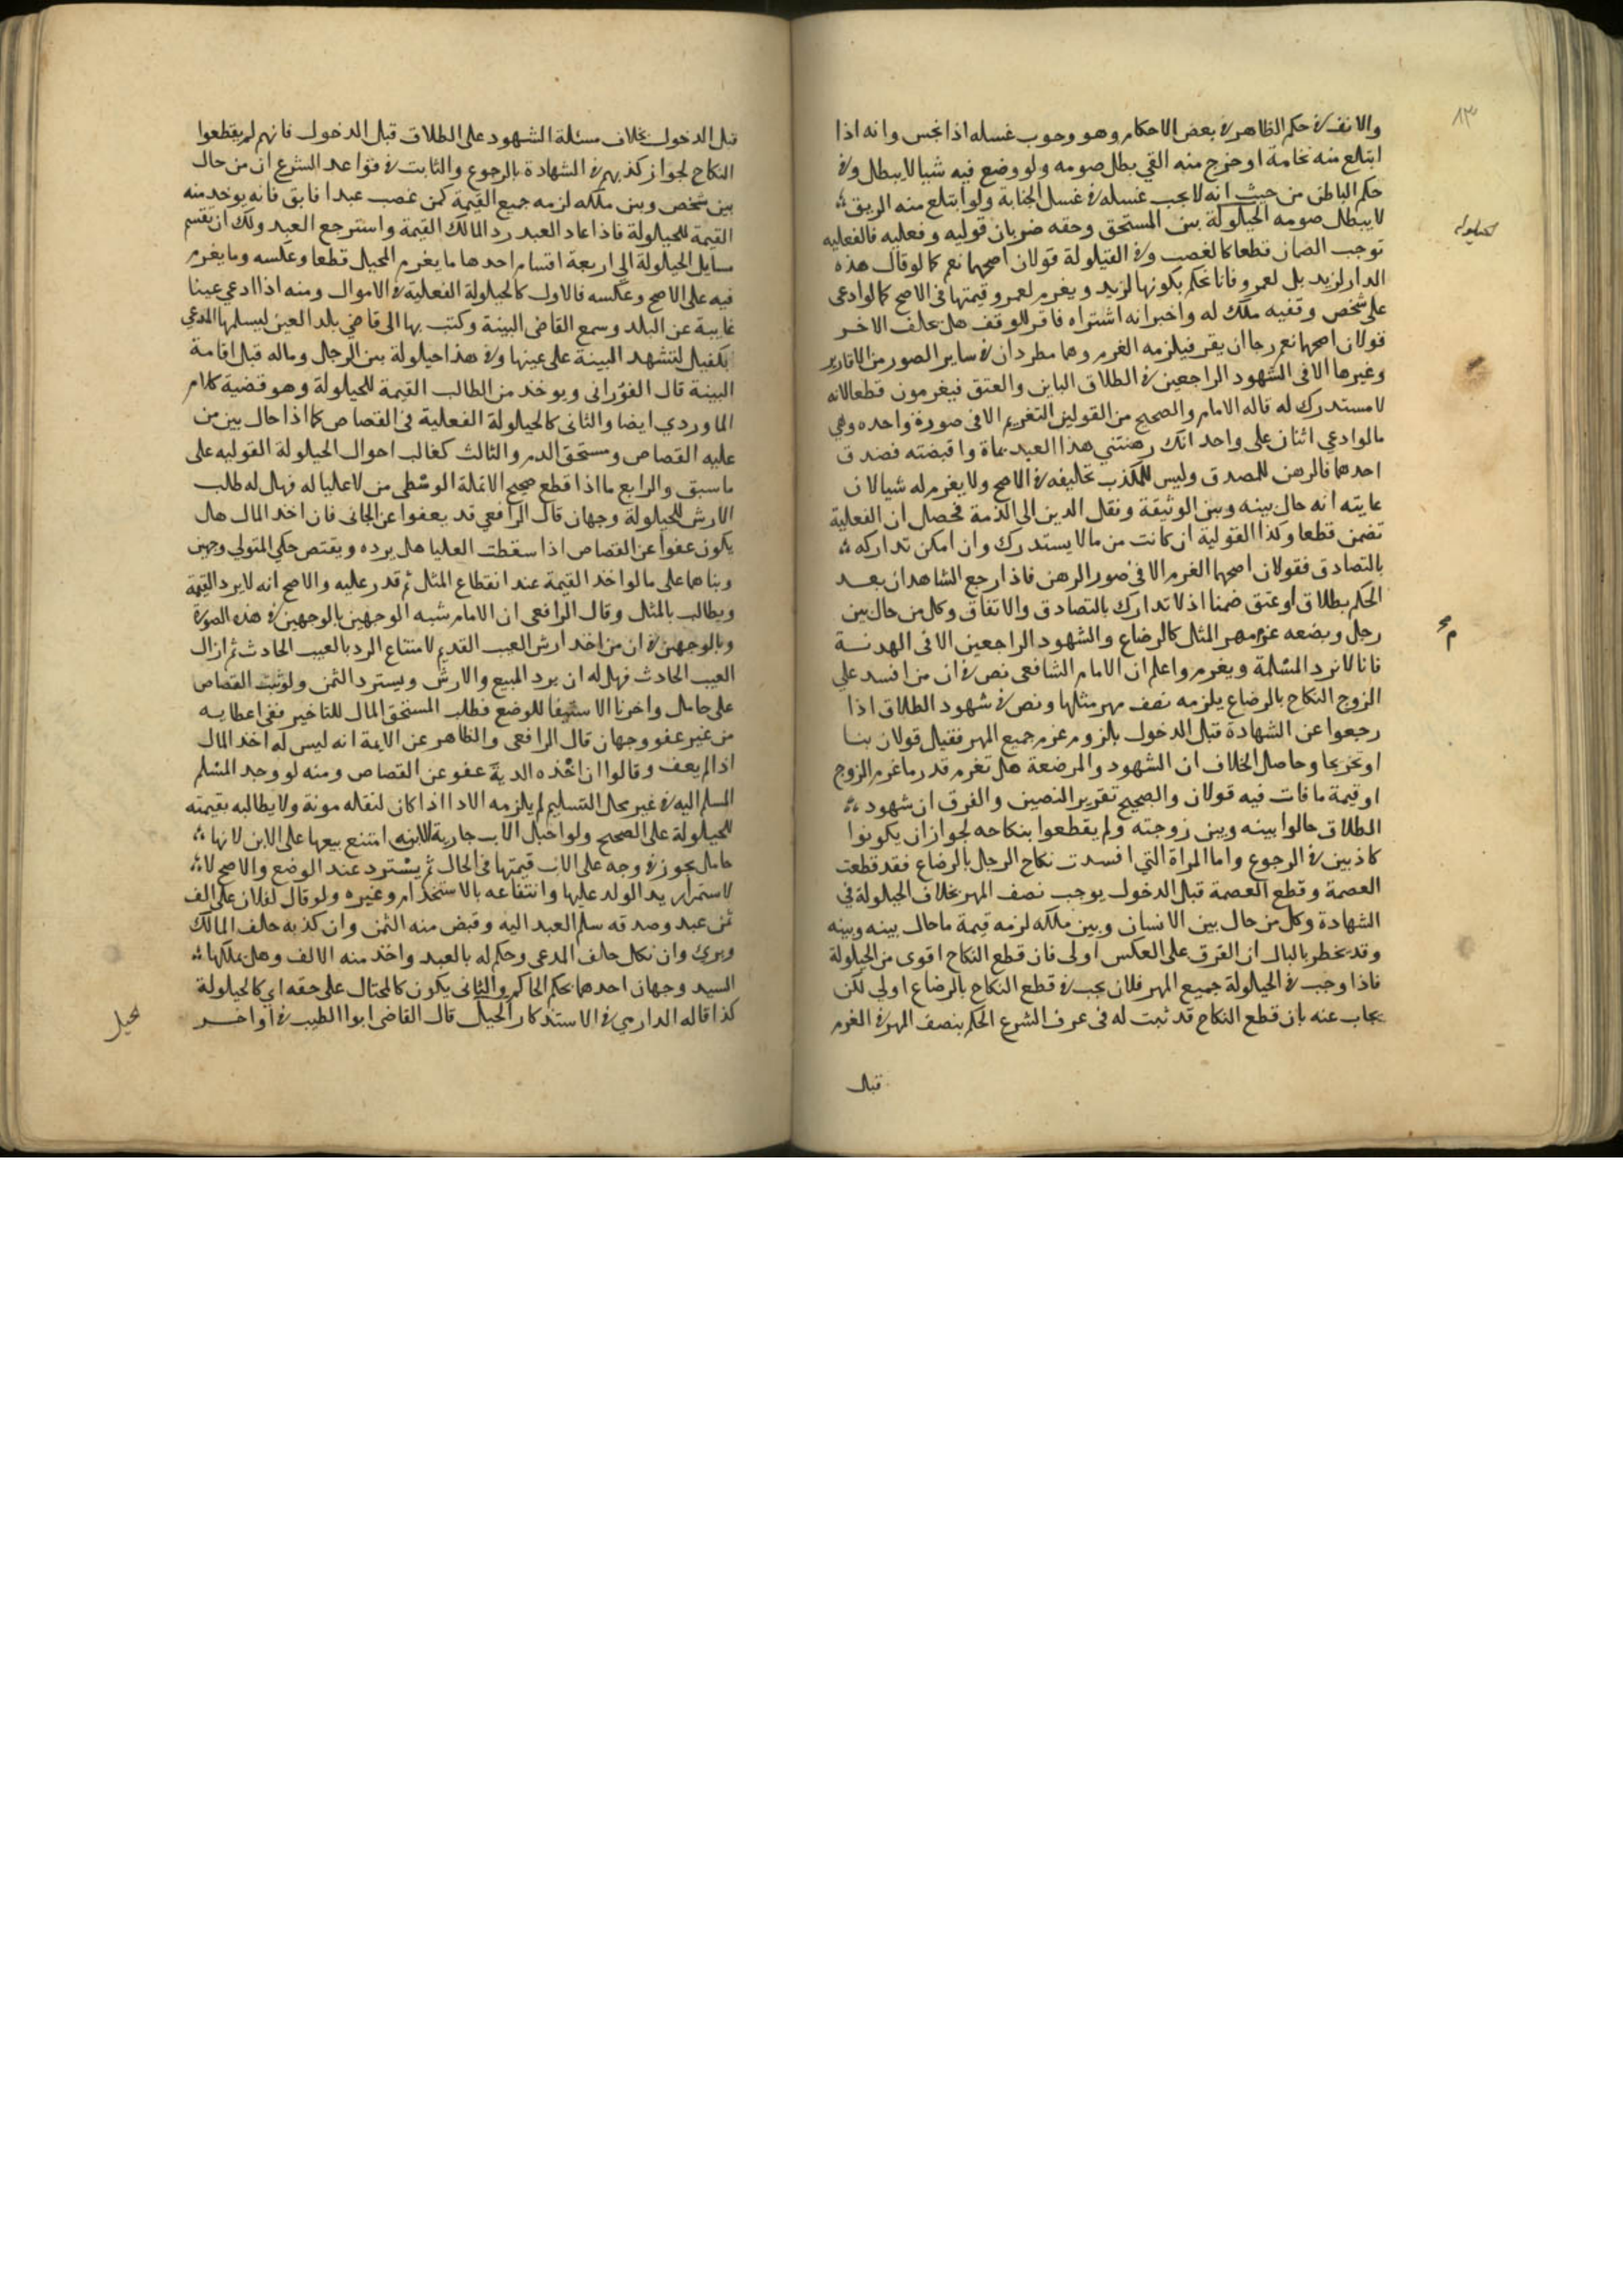 ٨٣
والانف في حكم الظاهر في بعض الاحكام وهو وجوب غسله اذا نجس وانه اذا
ابتلع منه نخامة او خرج منه القي بطل صومه ولو وضع فيه شيا لا يبطل وفي
حكم الباطن من حيث انه لا يجب غسله في غسل الجنابة ولو ابتلع منه الريق
لا يبطل صومه الحيلولة بين المستحق وحقه ضربان قوليه وفعليه فالفعليه
الحيلولة
توجب الضمان قطعا كالغصب وفي القيلولة قولان اصحهما نعم كما لو قال هذه
الدار لزيد بل لعمرو فانا نحكم بكونها لزيد ويغرم لعمرو قيمتها في الاصح كما لو ادعى
على شخص وقفيه ملك له واخبر انه اشتراه فاقر للوقف هل يحلف الاخر
قولان اصحهما نعم رجا ان يقر فيلزمه الغرم وهما مطردان في ساير الصور من الاقارير
وغيرها الا في الشهود الراجعين في الطلاق الباين والعتق فيغرمون قطعا لانه
لا مستدرك له قاله الامام والصحيح من القولين التغريم الا في صورة واحده وهي
ما لو ادعى اثنان على واحد انك رهنتني هذا العبد بماة واقبضته فصدق
احدهما فالرهن للمصدق وليس للمكذب تحليفه في الاصح ولا يغرم له شيا لان
غايته انه حال بينه وبين الوثيقة ونقل الدين الى الذمة فحصل ان الفعلية
تضمن قطعا وكذا القولية ان كانت من ما لا يستدرك وان امكن تداركه
بالتصادق فقولان اصحهما الغرم الا في صور الرهن فاذا رجع الشاهدان بعد
الحكم بطلاق او عتق ضمنا اذ لا تدارك بالتصادق والاتفاق وكل من حال بين
رجل وبضعه غرم مهر المثل كالرضاع والشهود الراجعين الا في الهدنة
فانا لا نرد المسلمة ويغرم واعلم ان الامام الشافعي نص في ان من افسد علي
الزوج النكاح بالرضاع يلزمه نصف مهر مثلها ونص في شهود الطلاق اذا
رجعوا عن الشهادة قبل الدخول بالزوم غرم جميع المهر فقيل قولان بنا
او تخريجا وحاصل الخلاف ان الشهود والمرضعة هل تغرم قدر ما غرم الزوج
او قيمة ما فات فيه قولان والصحيح تقرير النصين والفرق ان شهود
الطلاق حالوا بينه وبين زوجته ولم يقطعوا بنكاحه لجواز ان يكونوا
كاذبين في الرجوع واما المراة التي افسدت نكاح الرجل بالرضاع فقد قطعت
العصمة وقطع العصمة قبل الدخول يوجب نصف المهر بخلاف الحيلولة في
الشهادة وكل من حال بين الانسان وبين ملكه لزمه قيمة ما حال بينه وبينه
وقد يخطر بالبال ان الفرق على العكس اولى فان قطع النكاح اقوى من الحيلولة
فاذا وجب في الحيلولة جميع المهر فلان يجب في قطع النكاح بالرضاع اولي لكن
يجاب عنه بان قطع النكاح قد ثبت له في عرف الشرع الحكم بنصف المهر في الغرم
قبل
قبل الدخول بخلاف مسئلة الشهود على الطلاق قبل الدخول فانهم لم يقطعوا
النكاح لجواز كذبهم في الشهادة بالرجوع والثابت في قواعد الشرع ان من حال
بين شخص وبين ملكه لزمه جميع القيمة كمن غصب عبدا فابق فانه يوخد منه
القيمة للحيلولة فاذا عاد العبد رد المالك القيمة واسترجع العبد ولك ان تقسم
مسايل الحيلولة الي اربعة اقسام احدها ما يغرم المحيل قطعا وعكسه وما يغرم
فيه على الاصح وعكسه فالاول كالحيلولة الفعلية في الاموال ومنه اذا ادعي عينا
غايبة عن البلد وسمع القاضي البينة وكتب بها الى قاضي بلد العين ليسلمها المدعي
بكفيل لتشهد البينة على عينها وفي هذا حيلولة بين الرجل وماله قبل اقامة
البينة قال الفوراني ويوخد من الطالب القيمة للحيلولة وهو قضية كلام
الماوردي ايضا والثاني كالحيلولة الفعلية في القصاص كما اذا حال بين من
عليه القصاص ومستحق الدم والثالث كغالب احوال الحيلولة القوليه على
ما سبق والرابع ما اذا قطع صحيح الانملة الوسطى من لا عليا له فهل له طلب
الارش للحيلولة وجهان قال الرافعي قد يعفوا عن الجاني فان اخد المال هل
يكون عفوا عن القصاص اذا سقطت العليا هل يرده ويقتص حكي المتولي وجهين
وبناهما على ما لو اخد القيمة عند انقطاع المثل ثم قدر عليه والاصح انه لا يرد القيمة
ويطالب بالمثل وقال الرافعي ان الامام شبه الوجهين بالوجهين في هذه الصورة
وبالوجهين في ان من اخد ارش العيب القديم لامتناع الرد بالعيب الحادث ثم زال
العيب الحادث فهل له ان يرد المبيع والارش ويسترد الثمن ولو ثبت القصاص
على حامل واخرنا الاستيفا للوضع فطلب المستحق المال للتاخير ففي اعطايه
من غير عفو وجهان قال الرافعي والظاهر عن الايمة انه ليس له اخد المال
اذا لم يعف وقالوا ان اخذه الدية عفو عن القصاص ومنه لو وجد المسلم
المسلم اليه في غير محل التسليم لم يلزمه الادا اذا كان لنقله مونة ولا يطالبه بقيمته
للحيلولة على الصحيح ولو احبل الاب جارية لابنه امتنع بيعها على الابن لانها
حامل بحر وفي وجه على الاب قيمتها في الحال ثم يسترد عند الوضع والاصح لا
لاستمرار يد الولد عليها وانتفاعه بالاستخدام وغيره ولو قال لفلان علي الف
ثمن عبد وصدقه سلم العبد اليه وقبض منه الثمن وان كذبه حلف المالك
وبري وان نكل حلف المدعي وحكم له بالعبد واخذ منه الالف وهل يملكها
السيد وجهان احدهما بحكم الحاكم والثاني يكون كالمحتال على حقه اي كالحيلولة
كذا قاله الدارمي في الاستذكار الحيل قال القاضي ابوا الطيب في اواخر